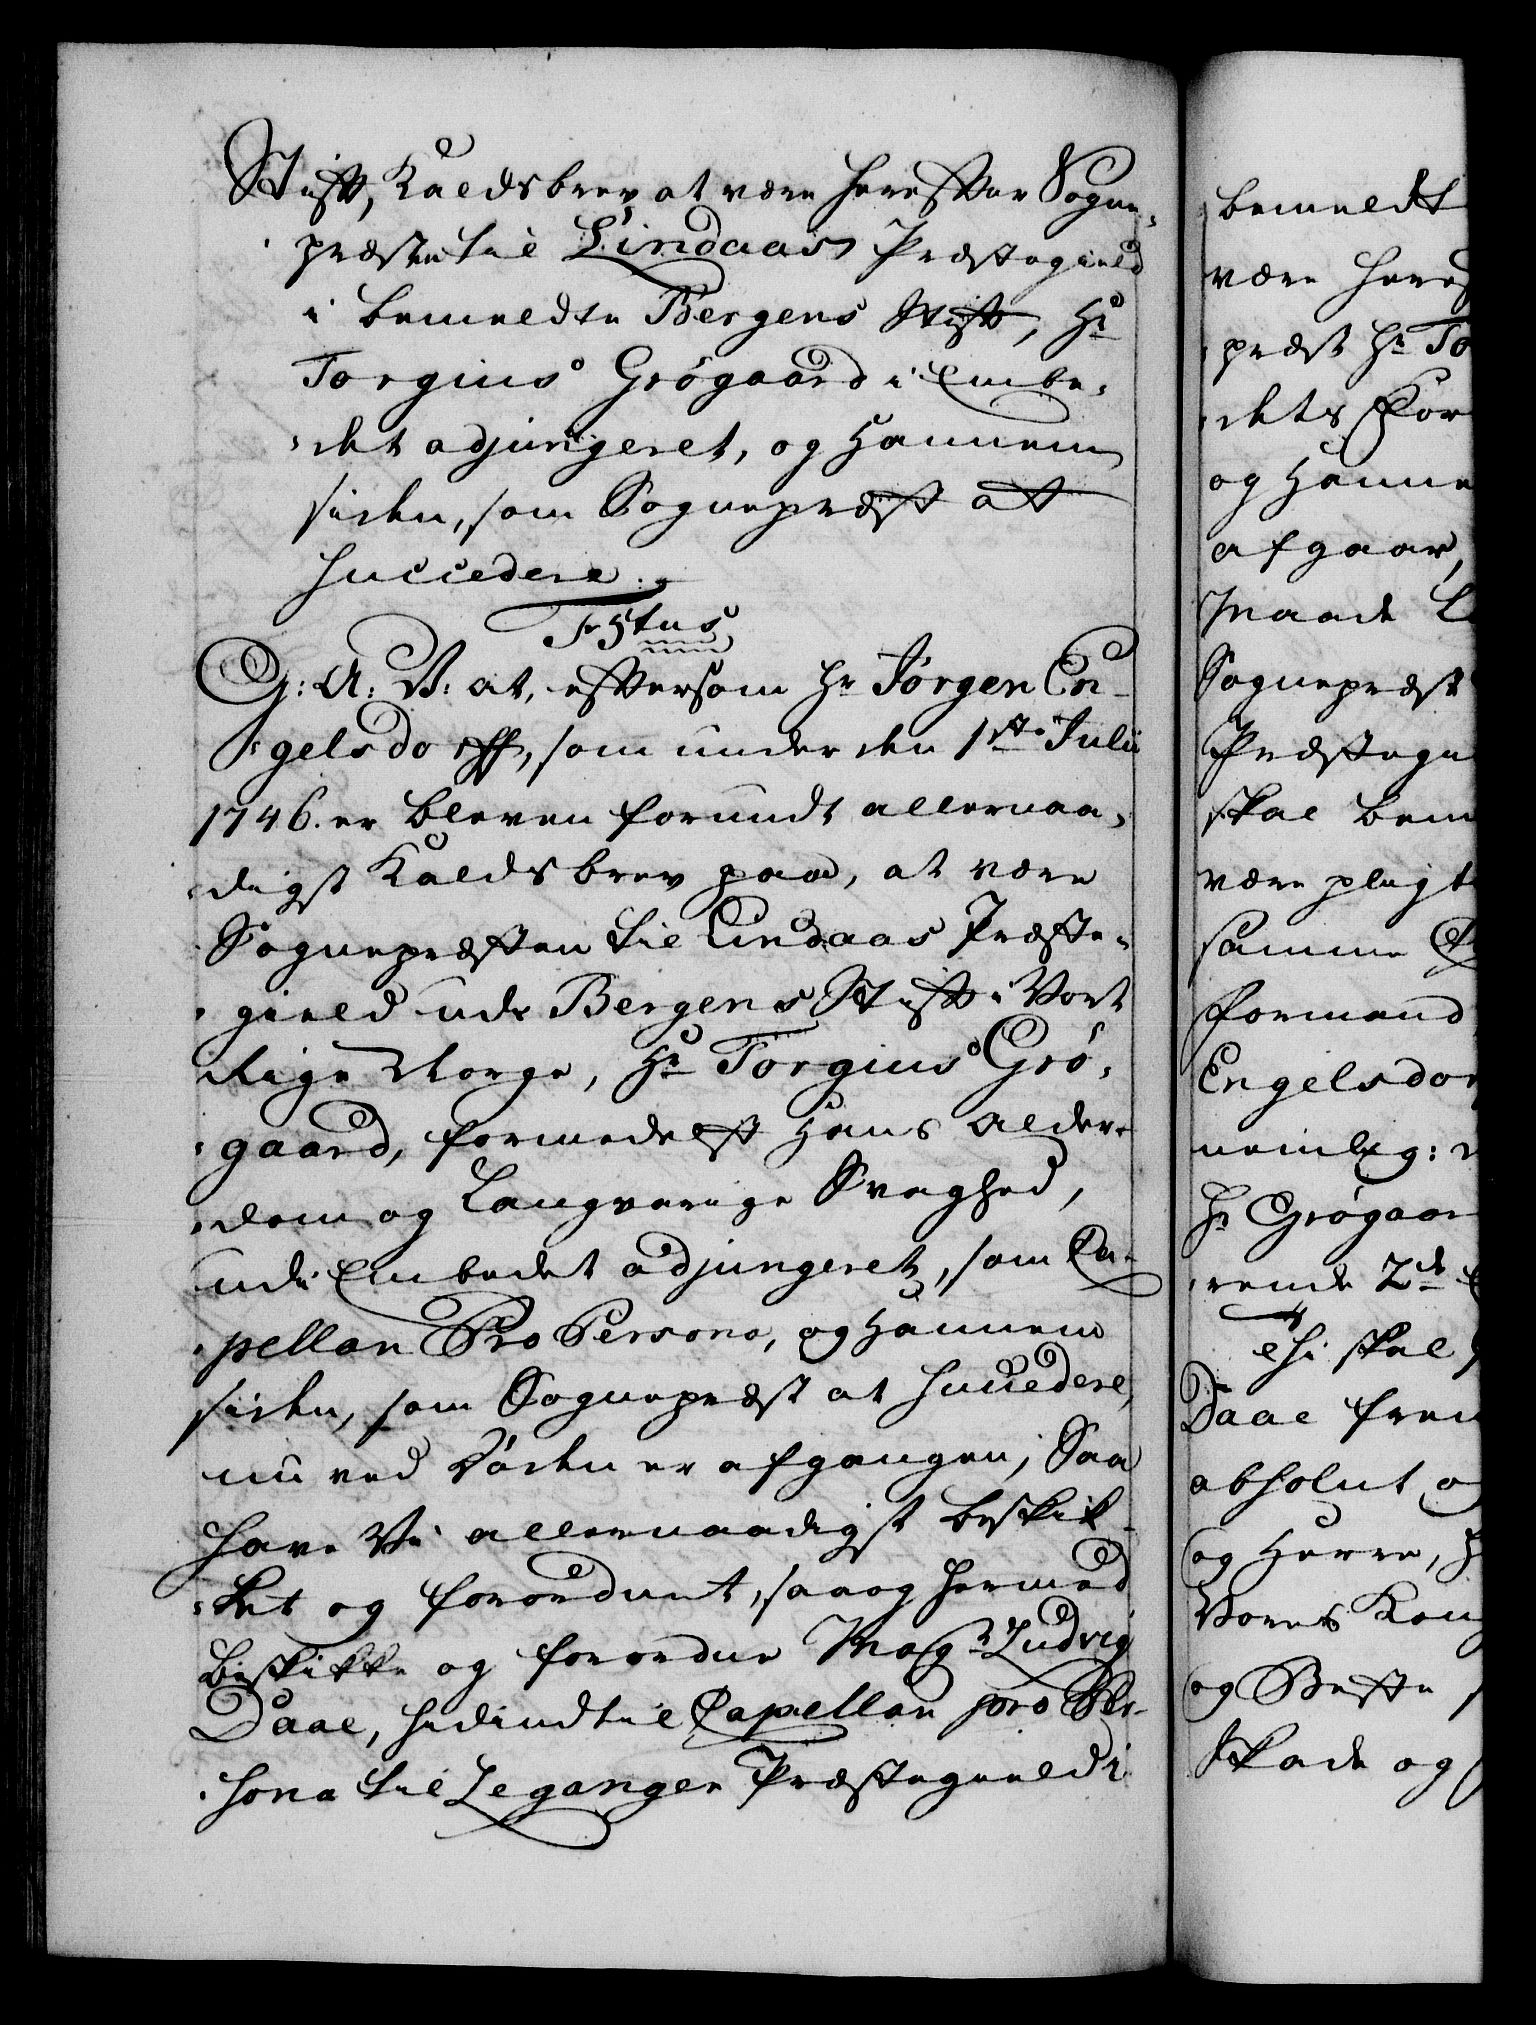 Stift, Kaldsbrev at være herefter Sogne-
præsten til Lindaas Præstegield
i bemeldte Bergens Stift, Hr
Torgius Grögaard i Embe-
det adjungeret, og Hannem
siden, som Sognepræst at
succedere.
G: A: V: at, eftersom Hr Jörgen En-
gelsdorff, som under den 1ste Julii
1746. er bleven forundt allernaa-
digst Kaldsbrev paa, at være
Sognepræsten til Lindaas Præste-
gield udi Bergens Stift i Vort
Rige Norge, Hr Torgius Grö-
gaard, formedelst Hans Alder-
dom og Langvarige Svaghed,
udi Embedet adjungeret, som Ca-
pellan Pro Persona, og Hannem
siden, som Sognepræst at succedere,
nu ved Döden er afgangen; Saa
have Vi allernaadigst beskik-
ket og forordnet, saa og hermed
beskikke og forordne Magr Ludvig
Daae, hidindtil Capellan pro Per-
sona til Leganger Præstegield i
bemeldt
være heref
præst Hr To
dets For
og Hanne
afgaar,
Maade
Sognepræst
Præstegi
skal bem
være pligt
samme
Formand
Engelsdor
nemlig:
Hr Grögaar
rende 2de
thi skal
Daae frem
absolut o
og Herre,
Vores Kon
og Beste
Skade og